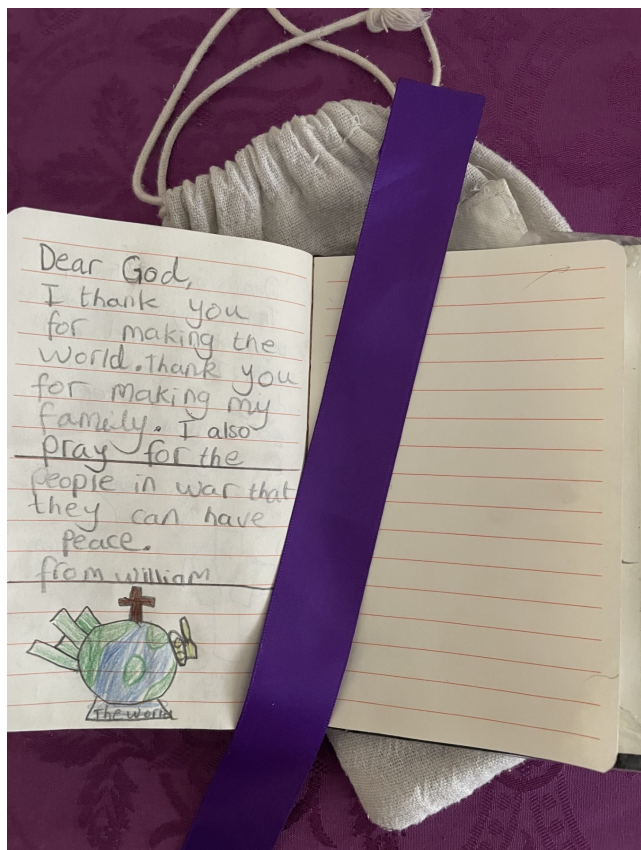 Dear God,
I thank you
for making the
world. thank you
for making my
family. I also
pray for the
people in war that
they can have
peace.
from william
The world